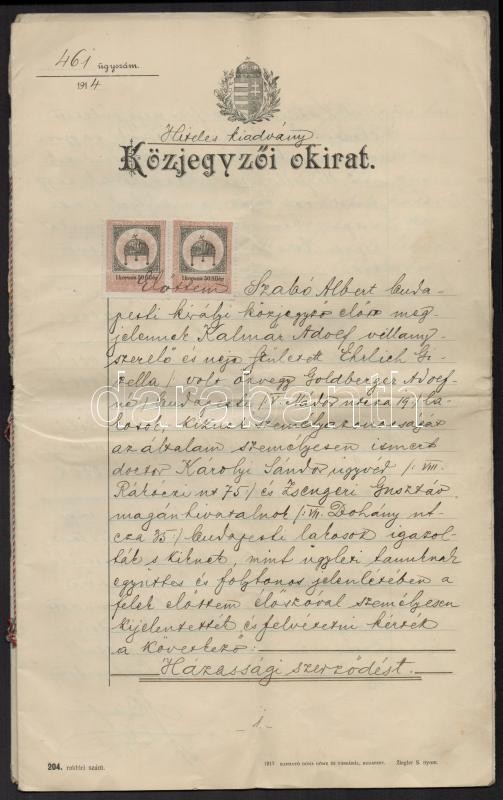 461 ügyszám.
1914
Hiteles kiadvány
Közjegyzői okirat.
1 korona 50 fillér 1 korona 50 fillér
Előttem Szabó Albert buda-
pesti királyi közjegyző előtt meg-
jelennek Kalmár Adolf villany-
szerelő és neje született Ehrlich Gi-
zella / volt özvegy Goldberger Adolf-
né budapesti / V. Nádor utcza 19 / la-
kosok, kiknek személyazonosságát
az általam személyesen ismert
doctor Károlyi Sándor ügyvéd /: VIII.
Rákóczi út 75 :/ és Zsengeri Gusztáv
magánhivatalnok /: VII. Dohány ut-
cza 35 :/ budapesti lakosok igazol-
ták s kiknek, mint ügyleti tanuknak
együttes és folytonos jelenlétében a
felek előttem élőszóval személyesen
kijelentették és felvétetni kérték
a következő:
Házassági szerződést.
- 1. -
204. raktári szám.
1913
Ziegler S. nyom.
darabanth